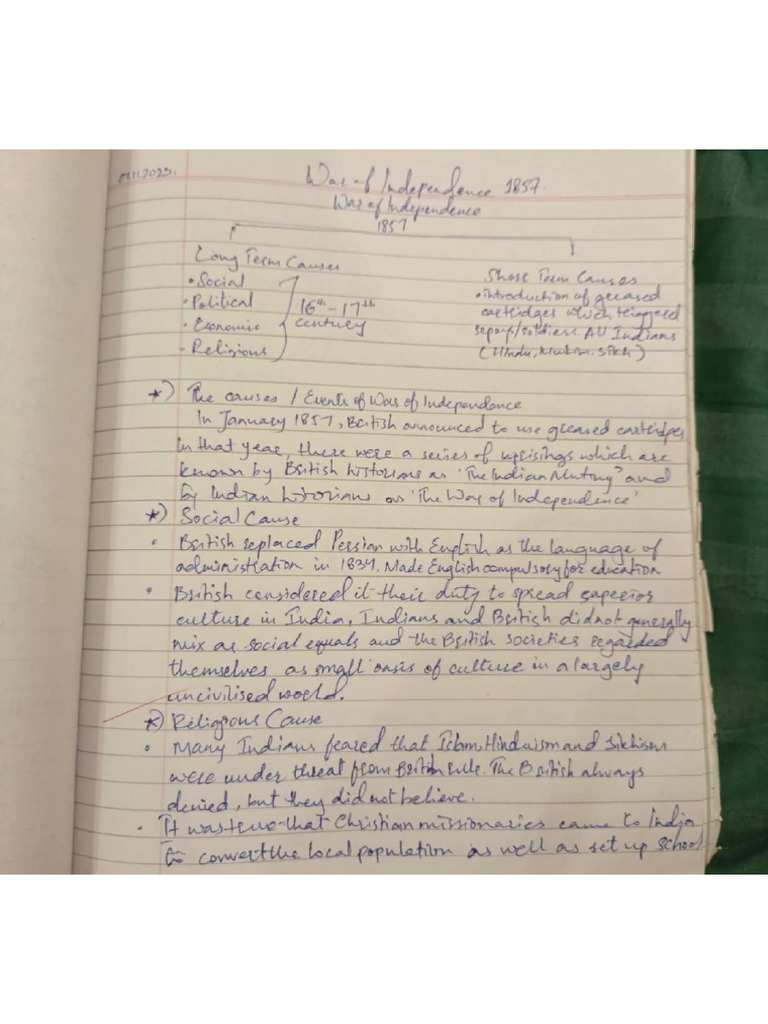 .11.2023.
War of Independence 1857.
War of Independence
1857
Long Term Causes
• Social
• Political
• Economic
• Religious
16th - 17th
century
Short Term Causes
• introduction of greased
cartridges which triggered
sepoys/soldiers All Indians
(Hindu, Muslim, Sikh)
*) The causes / Events of War of Independence
In January 1857, British announced to use greased cartridges
in that year, there were a series of uprisings which are
known by British historians as 'The Indian Mutiny" and
by Indian historians as 'The War of Independence'
*) Social Cause
• British replaced Persian with English as the language of
administration in 1834. Made English compulsory for education
• British considered it their duty to spread superior
culture in India, Indians and British did not generally
mix as social equals and the British societies regarded
themselves as small oasis of culture in a largely
uncivilised world.
*) Religious Cause
• Many Indians feared that Islam, Hinduism and Sikhism
were under threat from British rule. The British always
denied, but they did not believe.
• It was true that Christian missionaries came to India
to convert the local population as well as set up school